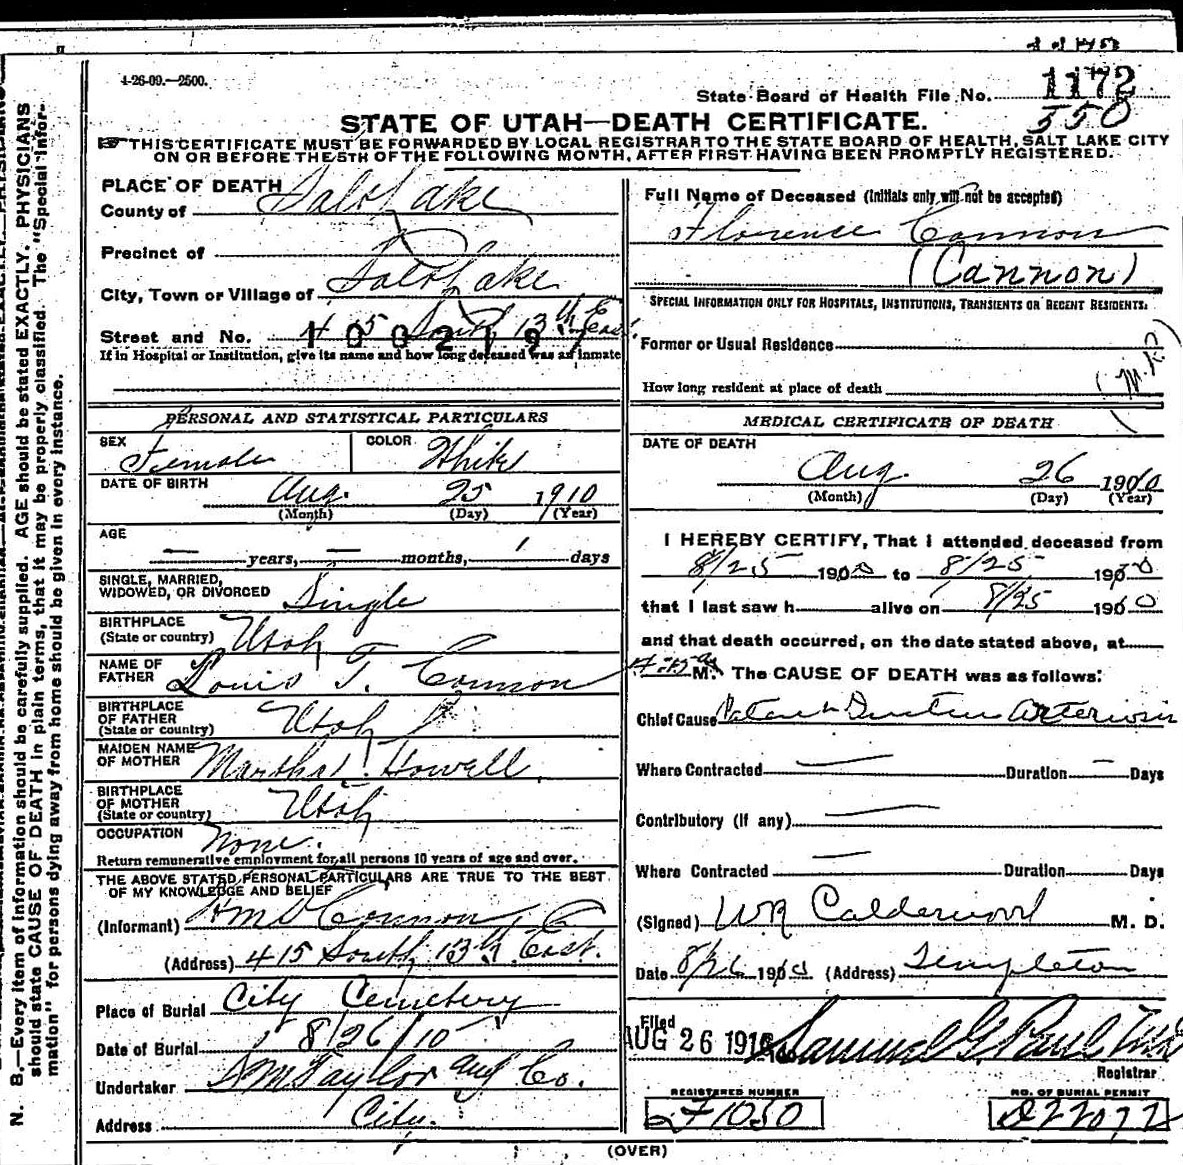 4-26-09.—2500.
State Board of Health File No. 1172
350
STATE OF UTAH—DEATH CERTIFICATE.
THIS CERTIFICATE MUST BE FORWARDED BY LOCAL REGISTRAR TO THE STATE BOARD OF HEALTH, SALT LAKE CITY
ON OR BEFORE THE 5TH OF THE FOLLOWING MONTH, AFTER FIRST HAVING BEEN PROMPTLY REGISTERED.
PLACE OF DEATH
County of Salt Lake
Precinct of
City, Town or Village of Salt Lake
Street and No. 415 South 13th East.
100219
If in Hospital or Institution, give its name and how long deceased was an inmate
PERSONAL AND STATISTICAL PARTICULARS
SEX Female COLOR White
DATE OF BIRTH Aug. 25 1910
(Month) (Day) (Year)
AGE
— years, — months, 1 days
SINGLE, MARRIED,
WIDOWED, OR DIVORCED Single
BIRTHPLACE
(State or country) Utah
NAME OF
FATHER Louis T. Cannon
BIRTHPLACE
OF FATHER
(State or country) Utah
MAIDEN NAME
OF MOTHER Martha Howell
BIRTHPLACE
OF MOTHER
(State or country) Utah
OCCUPATION None.
Return remunerative employment for all persons 10 years of age and over.
THE ABOVE STATED PERSONAL PARTICULARS ARE TRUE TO THE BEST
OF MY KNOWLEDGE AND BELIEF
(Informant) Cannon
(Address) 415 South 13th East.
Place of Burial City Cemetery
Date of Burial 8/26/10
Undertaker S M Taylor and Co.
Address City.
Full Name of Deceased (Initials only will not be accepted)
Florence Cannon
(Cannon)
SPECIAL INFORMATION ONLY FOR HOSPITALS, INSTITUTIONS, TRANSIENTS OR RECENT RESIDENTS.
Former or Usual Residence
How long resident at place of death
MEDICAL CERTIFICATE OF DEATH
DATE OF DEATH
Aug. 26 1910
(Month) (Day) (Year)
I HEREBY CERTIFY, That I attended deceased from
8/25 1910 to 8/25 1910
that I last saw h alive on 8/25 1910
and that death occurred, on the date stated above, at
M. The CAUSE OF DEATH was as follows:
Chief Cause Patent Ductus Arteriosis
Where Contracted — Duration — Days
Contributory (if any) —
Where Contracted — Duration Days
(Signed) W R Calderwood M. D.
Date 8/26 1910 (Address) Templeton
Filed
AUG 26 1910 Samuel G Paul
Registrar
REGISTERED NUMBER NO. OF BURIAL PERMIT
F1050 D22072
(OVER)
N. B.—Every item of information should be carefully supplied. AGE should be stated EXACTLY. PHYSICIANS
should state CAUSE OF DEATH in plain terms, that it may be properly classified. The "Special Infor-
mation" for persons dying away from home should be given in every instance.